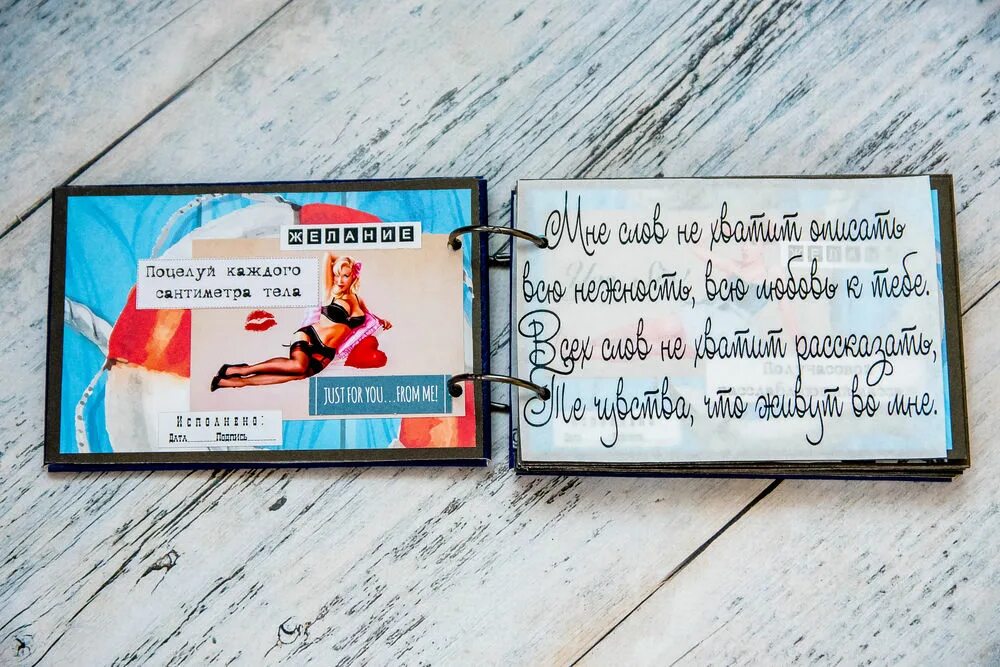 ЖЕЛАНИЕ
Поцелуй каждого
сантиметра тела
JUST FOR YOU...FROM ME!
Исполнено:
Дата Подпись
Мне слов не хватит описать
всю нежность, всю любовь к тебе.
Всех слов не хватит рассказать,
Те чувства, что живут во мне.